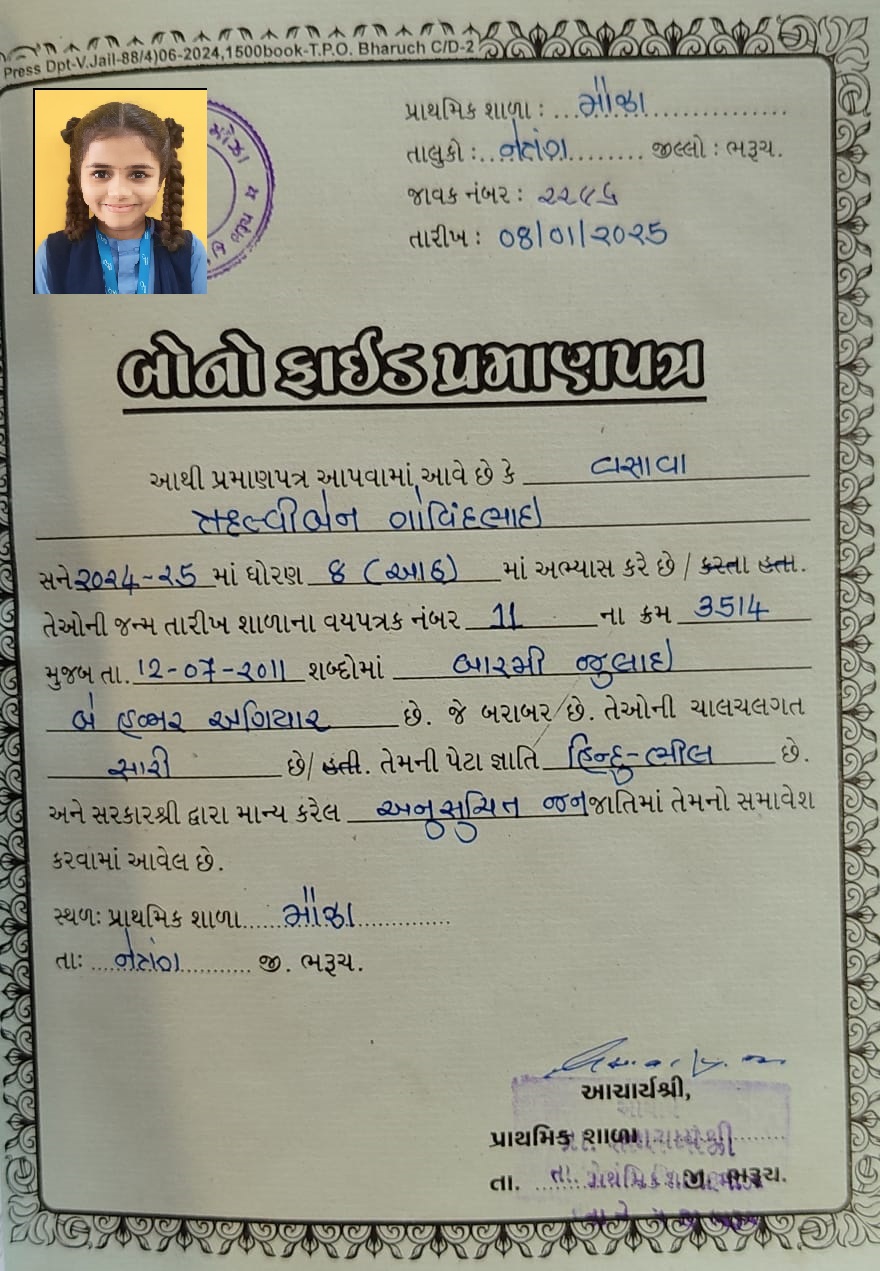 Press Dpt-V.Jail-88/4)06-2024,1500book-T.P.O. Bharuch C/D-2
પ્રાથમિક શાળા : ...મૌઝા..............
તાલુકો :..નેત્રંગ........ જીલ્લો : ભરૂચ.
જાવક નંબર : ૨૨૬૬
તારીખ : 08/01/૨૦૨5
બોનોફાઈડ પ્રમાણપત્ર
આથી પ્રમાણપત્ર આપવામાં આવે છે કે વસાવા
ગોવિંદભાઇ
સને ૨૦૨4-૨5 માં ધોરણ ૪ (આઠ) માં અભ્યાસ કરે છે / કરતા હતા.
તેઓની જન્મ તારીખ શાળાના વયપત્રક નંબર 11 ના ક્રમ 3514
મુજબ તા. 12-07-૨૦11 શબ્દોમાં બારમી જુલાઇ
બે હજાર અગિયાર છે. જે બરાબર છે. તેઓની ચાલચલગત
સારી છે/ હતી. તેમની પેટા જ્ઞાતિ હિન્દુ-ભીલ છે.
અને સરકારશ્રી દ્વારા માન્ય કરેલ અનુસુચિત જનજાતિમાં તેમનો સમાવેશ
કરવામાં આવેલ છે.
સ્થળઃ પ્રાથમિક શાળા.....મૌઝા............
તાઃ ...નેત્રંગ.......... જી. ભરૂચ.
આચાર્યશ્રી,
પ્રાથમિક શાળા
તા. જી. ભરૂચ.